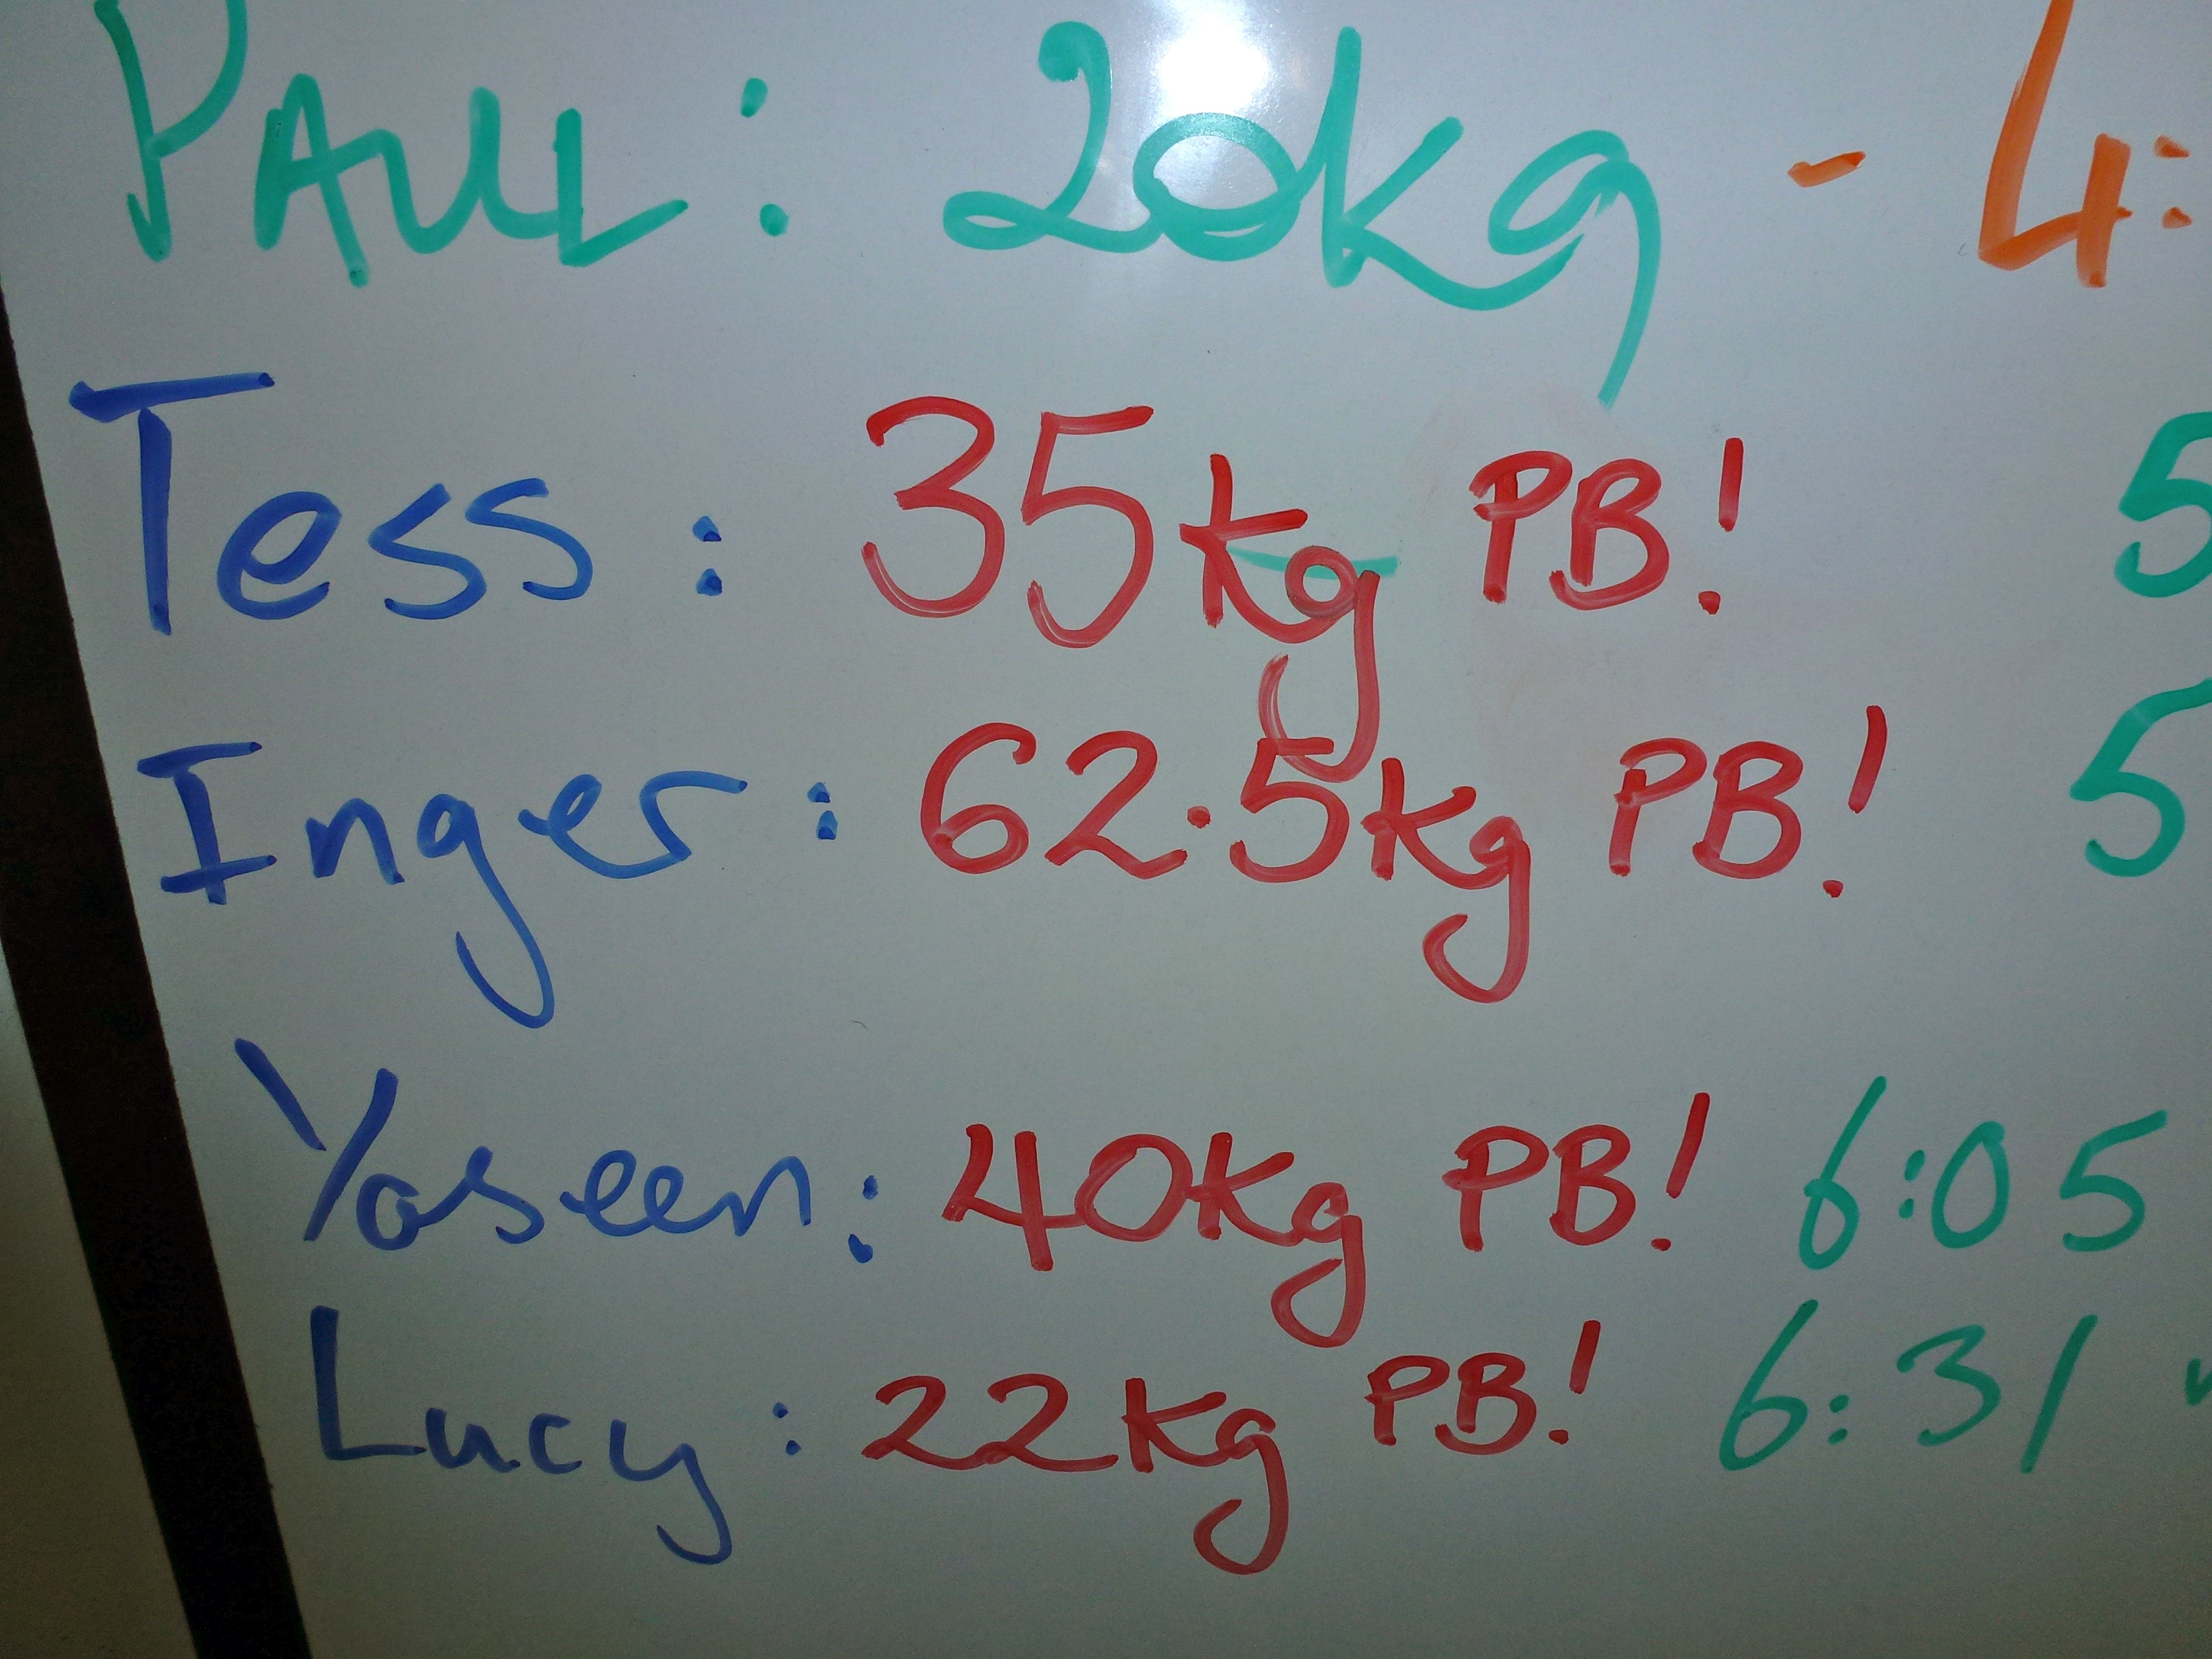 PAUL: 20kg - 4:
Tess: 35kg PB! 5
Inger: 62.5kg PB! 5
Yaseen: 40kg PB! 6:05
Lucy: 22kg PB! 6:31